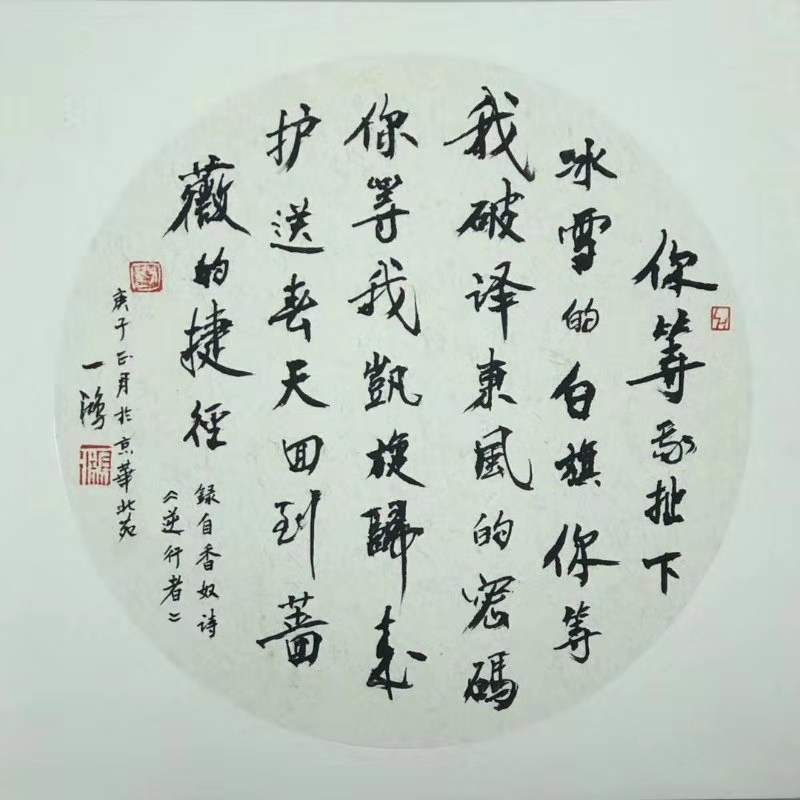 你等我扯下
冰雪的白旗你等
我破译東風的密碼
你等我凱旋歸来
护送春天回到蔷
薇的捷徑
録自香奴诗
《逆行者》
庚子正月於京華北苑
一鴻